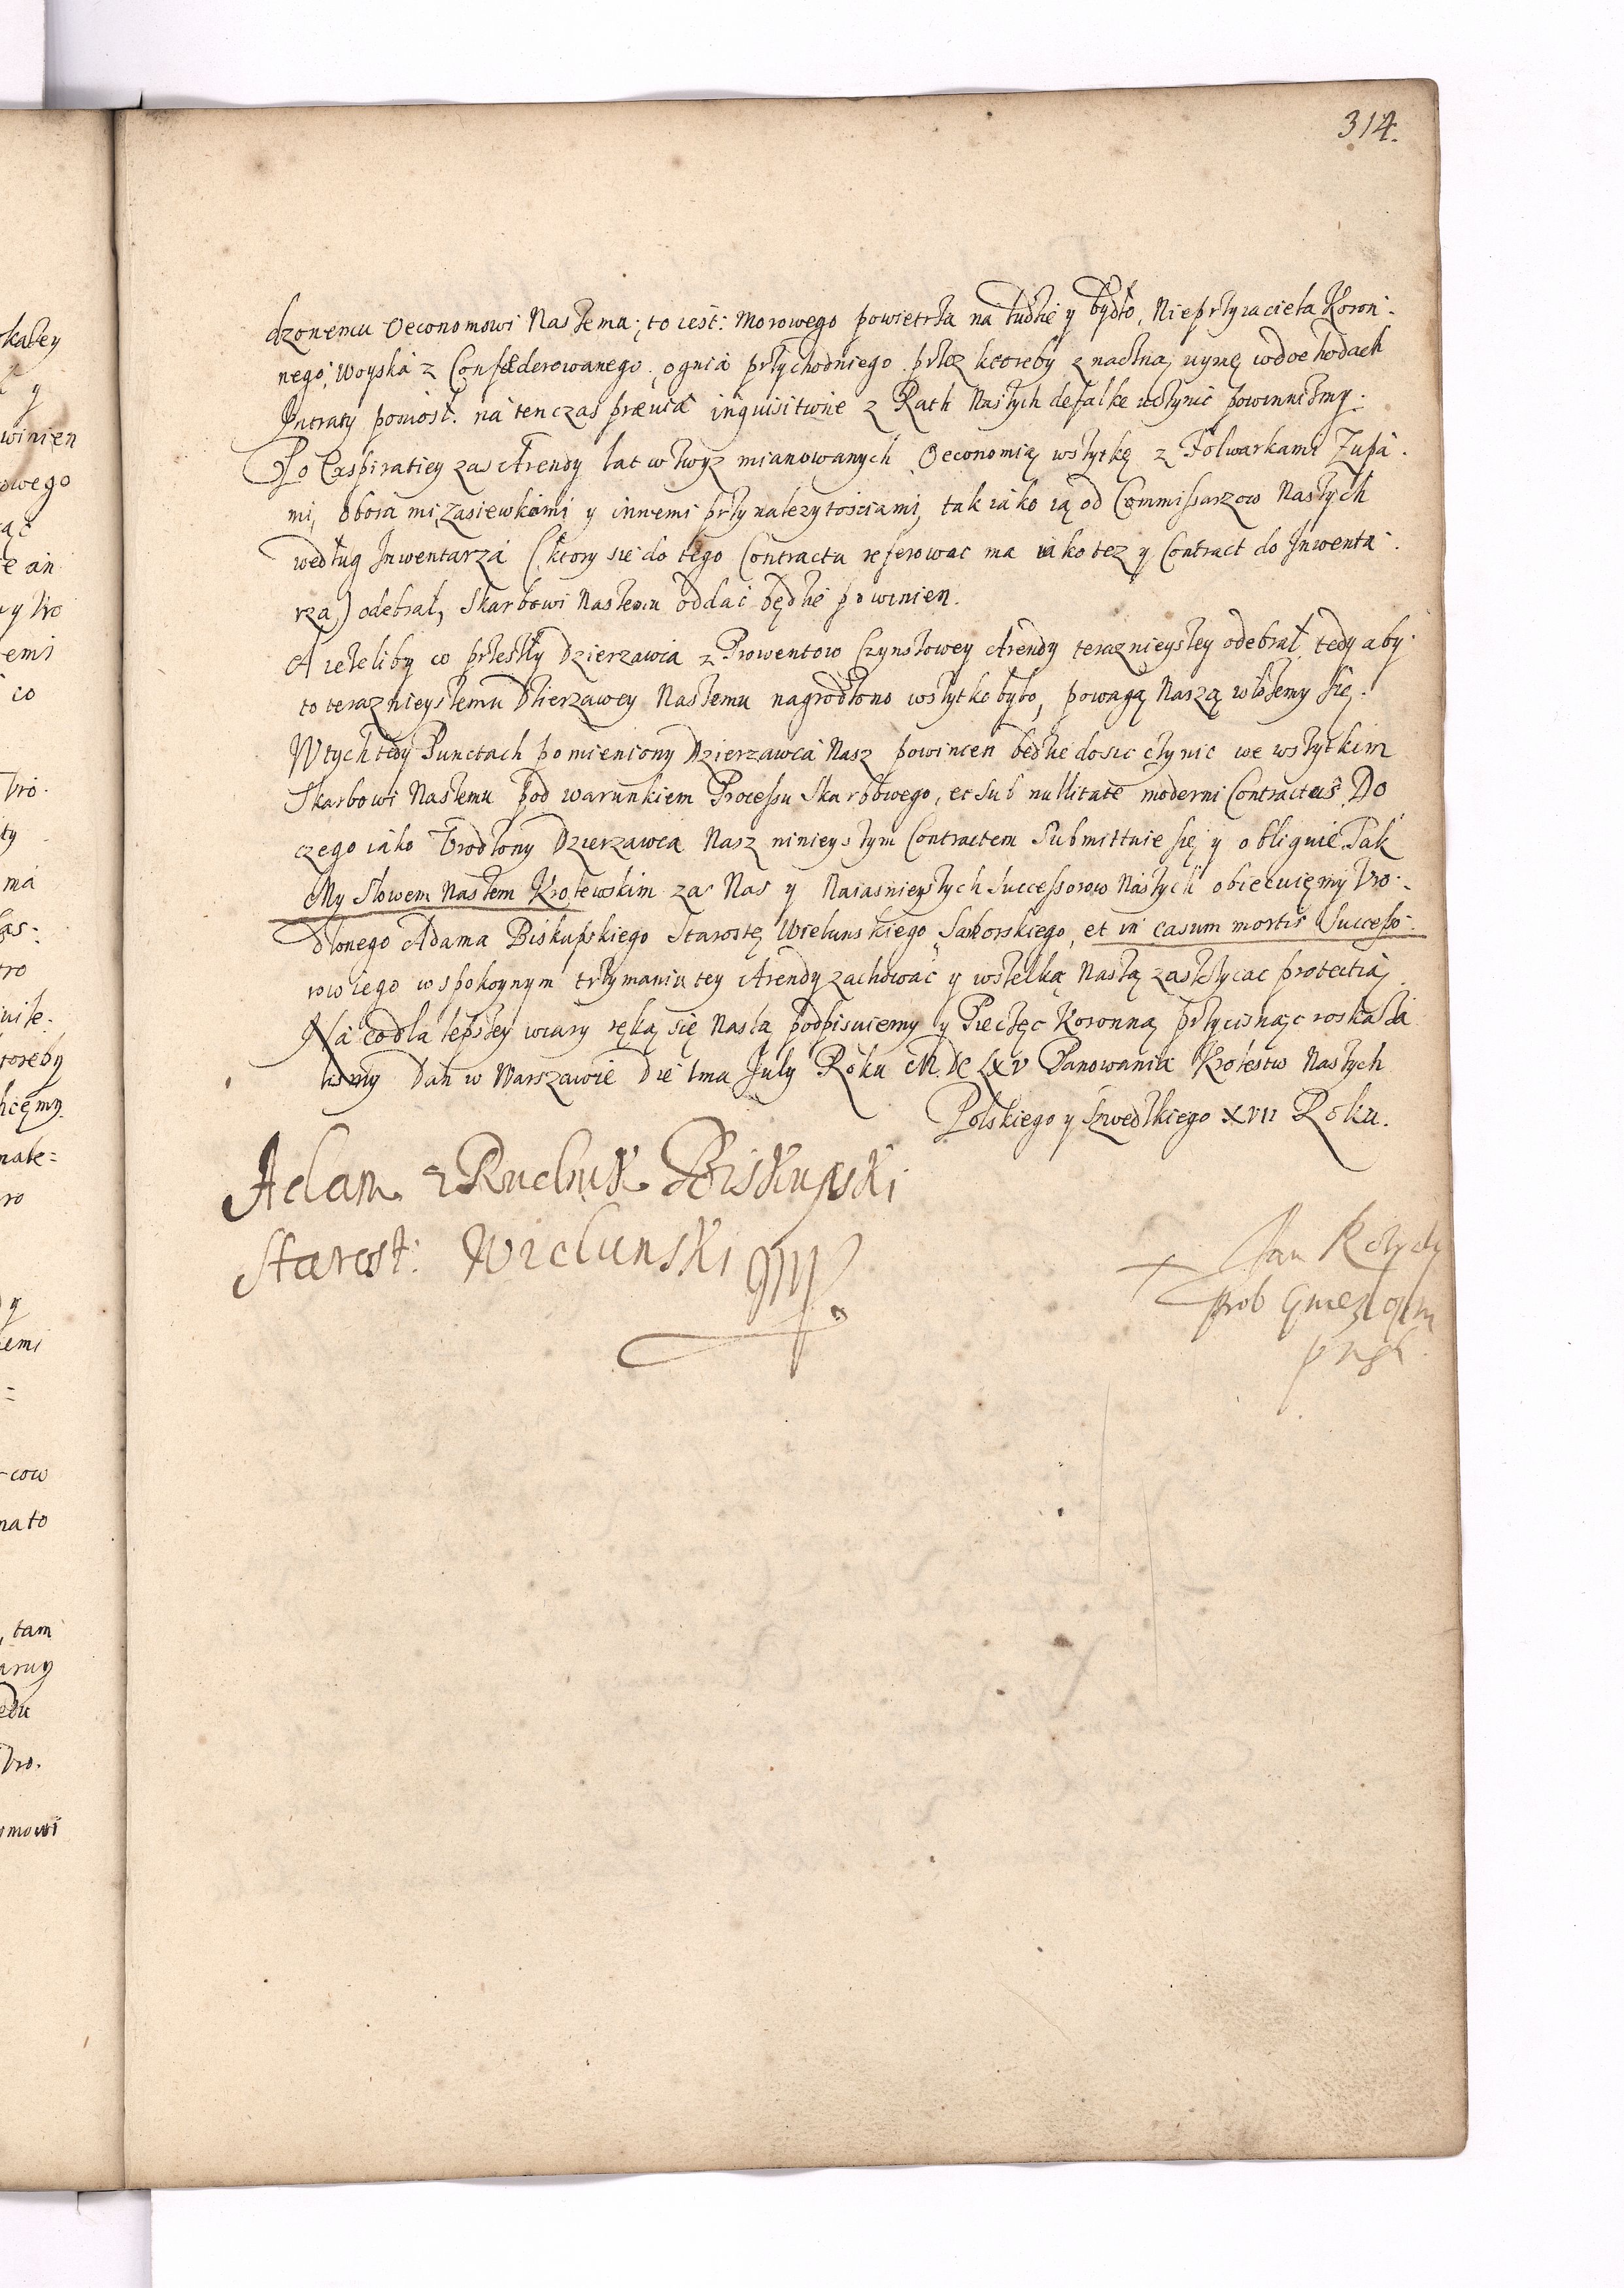 314.
dzonemu Oeconomowi Naszemu; to iest: Morowego powietrza na ludzie y bydło, Nieprzyiaciela Koron-
nego, Woyska z Confœderowanego, ognia przychodniego. przez ktoreby znaczną uymę w dochodach
Intraty poniosł. na ten czas prævia inquisitione z Rath Naszych defalke uczynić powinnismy.
Po Exspiratiey zas Arendy lat w zwyz mianowanych Oeconomią wszytkę z Folwarkami Zupa-
mi, oborami, zasiewkami y innemi przynalezytosciami, tak iako ią od Commissarzow Naszych
według Inwentarza (ktory się do tego Contractu referowac ma iako tez y Contract do Inwenta-
rza) odebrał, Skarbowi Naszemu oddać będzie powinien.
A iezeliby co przeszły Dzierzawca z Prowentow Czynszowey Arendy teraznieyszey odebrał, tedy aby
to teraznieyszemu Dzierzawcy Naszemu nagrodzono wszytko było, powagą Naszą włozemy się.
W tych tedy Punctach pomieniony Dzierzawca Nasz powinien będzie dosic czynic we wszytkim
Skarbowi Naszemu pod warunkiem Processu Skarbowego, et sub nullitate moderni Contractus. Do
czego iako Vrodzony Dzierzawca Nasz ninieyszym Contractem Submittuie się y obliguie. Tak
My Słowem Naszem Krolewskim za Nas y Naiasnieyszych Successorow Naszych obiecuięmy Vro-
dzonego Adama Biskupskiego Starostę Wielunskiego, et in casum mortis Successo-
row iego w spokoynym trzymaniu tey Arendy zachować y wszelką Naszą zaszczycac protectią.
Na co dla lepszey wiary ręką się Naszą podpisuiemy y Pieczęc Koronną przycisnąc roskaza
lismy Dan w Warszawie Die 1ma July Roku M.DC LXV Panowania Krolestw Naszych
Polskiego y Szwedzkiego XVII Roku.
Adam z Rudnik Biskupski
Starost: Wielunski mp
Jan
prob